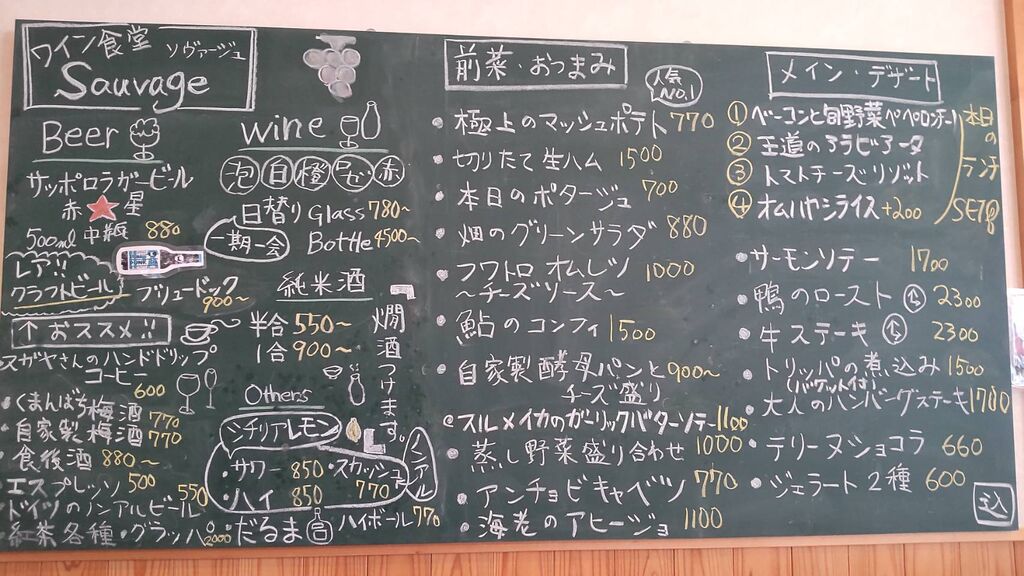 ワイン食堂 ソヴァージュ
Sauvage
Beer
サッポロラガービール
赤★星
500ml 中瓶 880
レア!!
クラフトビール ブリュードック
900~
↑おススメ!!
スガヤさんのハンドドリップ
コーヒー
600
・くまんばち梅酒 770
・自家製梅酒 770
・食後酒 880~
・エスプレッソ 500
・ドイツのノンアルビール 550
・紅茶各種 ・グラッパ 2000
wine
泡 白 橙 ロゼ 赤
日替り Glass 780~
一期一会 Bottle 4500~
純米酒
半合 550~
1合 900~
燗酒つけます。
Others
シチリアレモン
・サワー 850 ・スカッシュ
770
・ハイ 850
ノンアル
だるま ハイボール 770
前菜・おつまみ
人気No.1
・極上のマッシュポテト 770
・切りたて生ハム 1500
・本日のポタージュ 700
・畑のグリーンサラダ 880
・フワトロオムレツ 1000
~チーズソース~
・鮎のコンフィ 1500
・自家製酵母パンと 900~
チーズ盛り
・スルメイカのガーリックバターソテー 1100
・蒸し野菜盛り合わせ 1000
・アンチョビキャベツ 770
・海老のアヒージョ 1100
メイン・デザート
① ベーコンと旬野菜ペペロンチーノ
② 王道のアラビアータ
③ トマトチーズリゾット
④ オムハヤシライス +200
本日のランチSETは
・サーモンソテー 1700
・鴨のロースト 2300
・牛ステーキ 2300
・トリッパの煮込み 1500
(バケット付)
・大人のハンバーグステーキ 1700
・テリーヌショコラ 660
・ジェラート2種 600